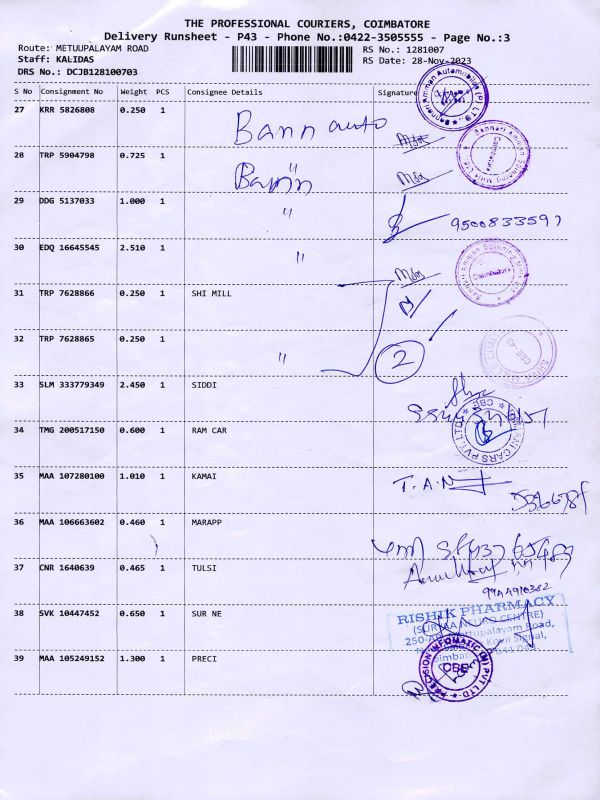 THE PROFESSIONAL COURIERS, COIMBATORE
Delivery Runsheet - P43 - Phone No.:0422-3505555 - Page No.:3
Route: METUUPALAYAM ROAD
RS No.: 1281007
Staff: KALIDAS
RS Date: 28-Nov-2023
DRS No.: DCJB128100703
S No Consignment No Weight PCS Consignee Details Signature
27 KRR 5826808 0.250 1 Bann auto
28 TRP 5904798 0.725 1 "
29 DDG 5137033 1.000 1 " 9500833597
30 EDQ 16645545 2.510 1 "
31 TRP 7628866 0.250 1 SHI MILL
32 TRP 7628865 0.250 1 " 2
33 SLM 333779349 2.450 1 SIDDI
34 TMG 200517150 0.600 1 RAM CAR
35 MAA 107280100 1.010 1 KAMAI T.A.N
36 MAA 106663602 0.460 1 MARAPP
37 CNR 1640639 0.465 1 TULSI
38 SVK 10447452 0.650 1 SUR NE
RISHIK PHARMACY
39 MAA 105249152 1.300 1 PRECI
CBE